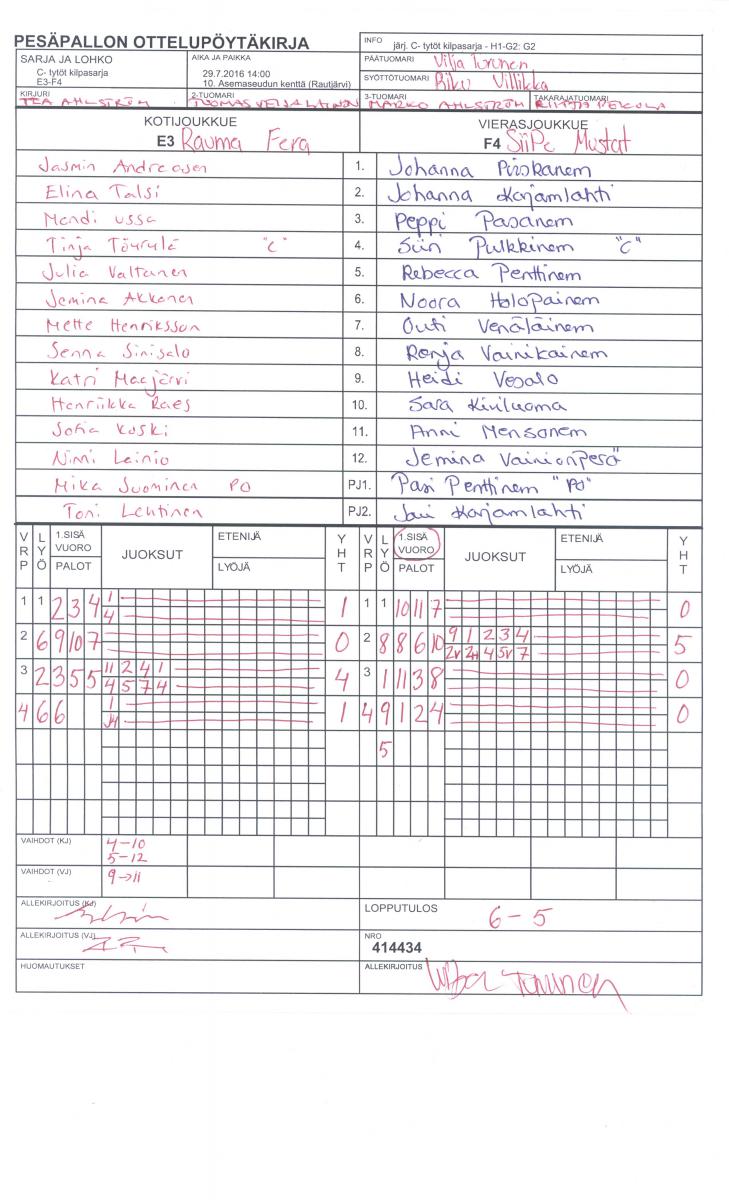 PESÄPALLON OTTELUPÖYTÄKIRJA
INFO järj. C- tytöt kilpasarja - H1-G2: G2
SARJA JA LOHKO
C- tytöt kilpasarja
E3-F4
AIKA JA PAIKKA
29.7.2016 14:00
10. Asemaseudun kenttä (Rautjärvi)
PÄÄTUOMARI Vilja Turunen
SYÖTTÖTUOMARI Riku Villikka
KIRJURI 2-TUOMARI 3-TUOMARI TAKARAJATUOMARI
TEA AHLSTRÖM TUOMAS VEIJALAINEN MARKO AHLSTRÖM RIITTA PEKOLA
KOTIJOUKKUE VIERASJOUKKUE
E3 Rauma Fera F4 SiiPe Mustat
Jasmin Andreasen 1. Johanna Piiskanem
Elina Talsi 2. Johanna Karjamlahti
Mendi ussa 3. Peppi Pasanem
Tinja Töurulä "C" 4. Siiri Pulkkinem "C"
Julia Valtanen 5. Rebecca Penttinem
Jemina Akkanen 6. Noora Holopainem
Mette Henriksson 7. Outi Venäläinem
Senna Sinisalo 8. Ronja Vainikainem
Katri Maajärvi 9. Heidi Vesalo
Henriikka Raes 10. Sara Kiviluoma
Sofia Koski 11. Anni Mensonem
Ninni Leinio 12. Jemina Vainionperä
Mika Suominen PO PJ1. Pasi Penttinem "PO"
Toni Lehtinen PJ2. Jari Karjamlahti
VRP LYÖ 1.SISÄ VUORO PALOT JUOKSUT ETENIJÄ LYÖJÄ YHT VRP LYÖ 1.SISÄ VUORO PALOT JUOKSUT ETENIJÄ LYÖJÄ YHT
1 1 2 3 4 1 1 1 1 10 11 7 0
4
2 6 9 10 7 0 2 8 8 6 10 9 1 2 3 4 5
2v 2H 4 5v 7
3 2 3 5 5 11 2 4 1 4 3 1 11 3 8 0
4 5 7 4
4 6 6 1 1 4 9 1 2 4 0
J4
5
VAIHDOT (KJ) 4-10
5-12
VAIHDOT (VJ) 9→11
ALLEKIRJOITUS (KJ)
LOPPUTULOS 6-5
ALLEKIRJOITUS (VJ)
NRO
414434
HUOMAUTUKSET
ALLEKIRJOITUS